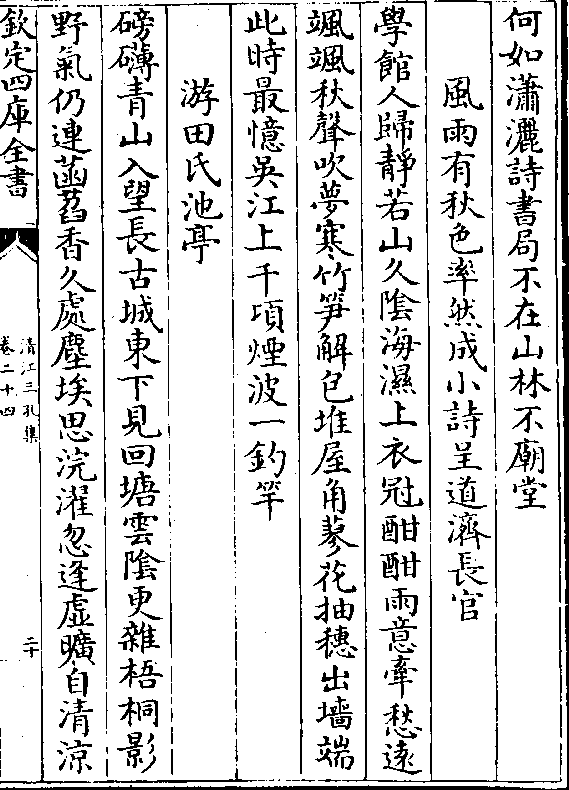 何如瀟灑詩書局不在山林不廟堂
風雨有秋色率然成小詩呈道濟長官
學館人歸靜若山久陰海濕上衣冠酣酣雨意牽愁遠
颯颯秋聲吹夢寒竹笋解包堆屋角蓼花抽穗出墻端
此時最憶吳江上千頃煙波一釣竿
游田氏池亭
磅礴青山入望長古城東下見回塘雲陰更雜梧桐影
野氣仍連菡萏香久處塵埃思浣濯忽逢虛曠自清涼
欽定四庫全書
清江三孔集
卷二十四
二十